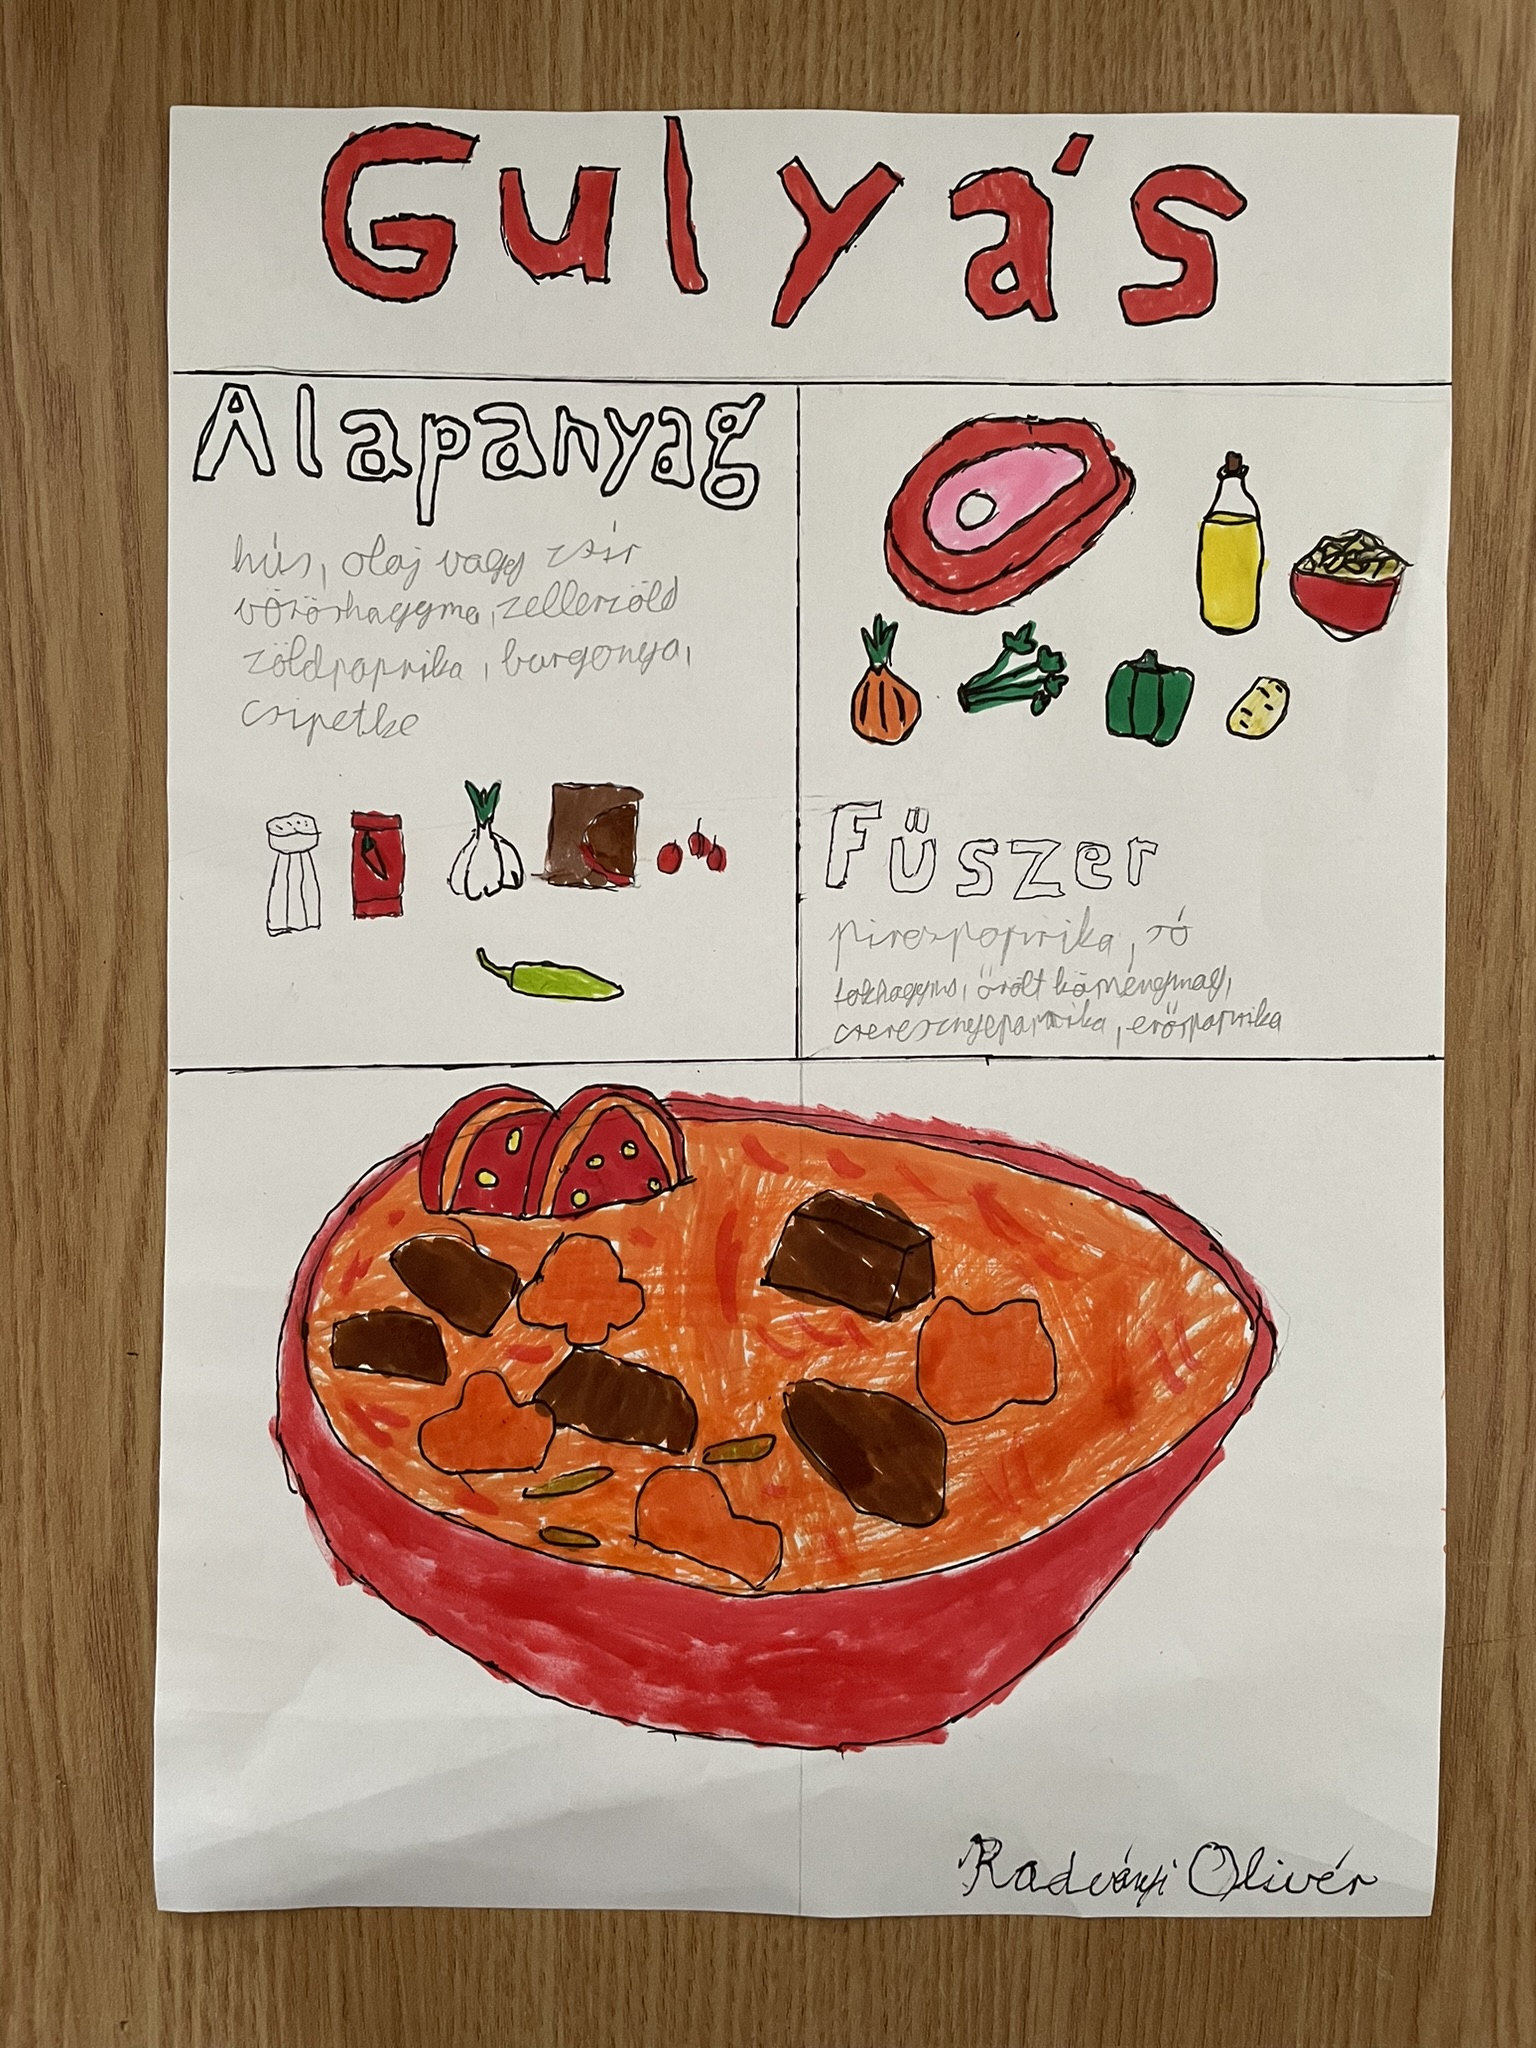 Gulyás
Alapanyag
hús, olaj vagy zsír
vöröshagyma, zellerzöld
zöldpaprika, burgonya,
csipetke
Fűszer
pirospaprika, só
fokhagyma, őrölt köménymag,
cseresznyepaprika, erőspaprika
Radványi Olivér